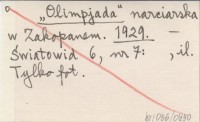 „Olimpjada" narciarska
w Zakopanem. 1929. —
Światowid 6, nr 7: , il.
Tylko fot.